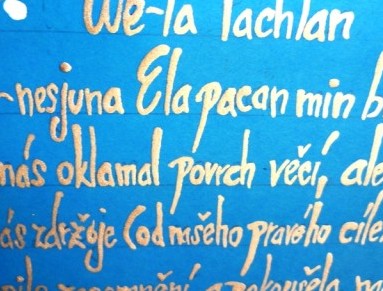 We-la lachlan
-nesjuna Ela pacan min b
nás oklamal povrch věčí, ale
ás zdržůje (od našeho pravého cíle
zapomnění a pokoušela